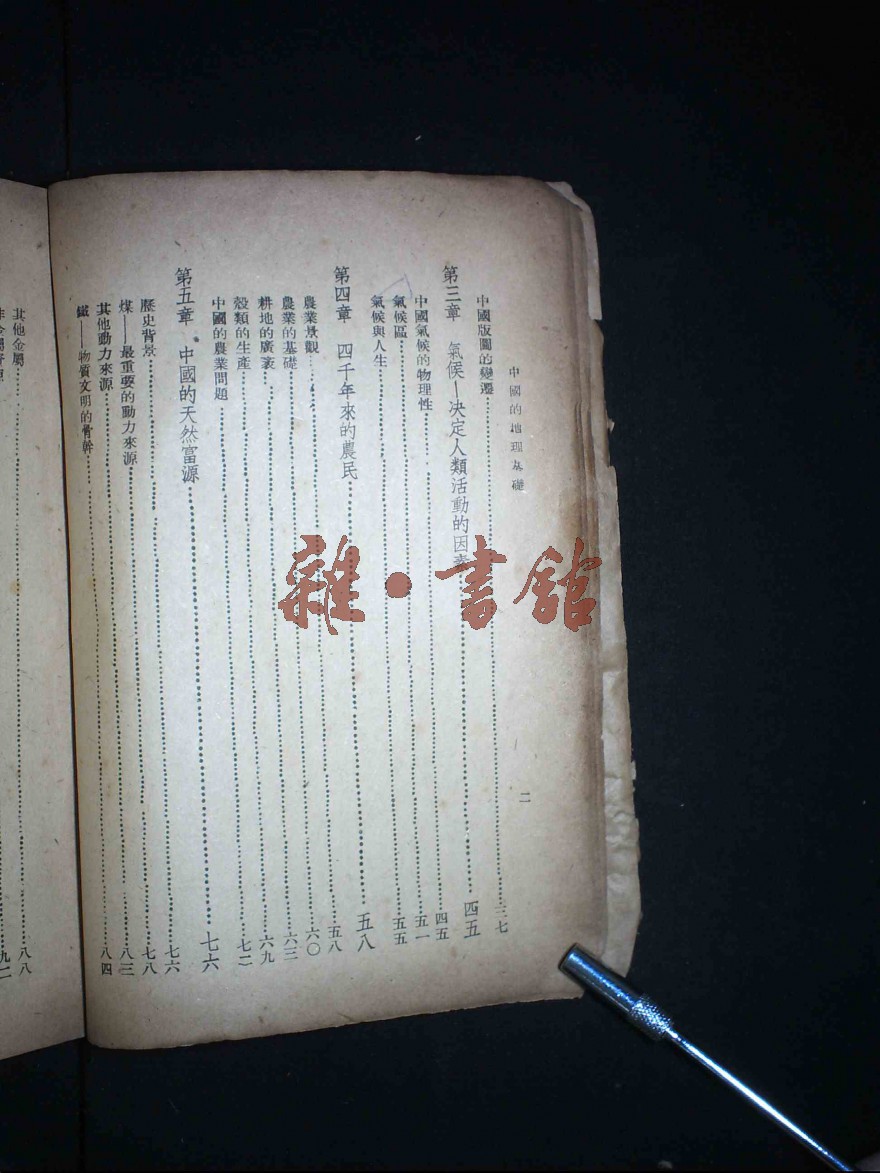 中國的地理基礎 二
中國版圖的變遷……
第三章 氣候—决定人類活動的因素……四五
中國氣候的物理性……四五
氣候區……五一
氣候與人生……五五
第四章 四千年來的農民……五八
農業景觀……五八
農業的基礎……六〇
耕地的廣袤……六三
殼類的生產……六九
中國的農業問題……七二
第五章 中國的天然富源……七六
歷史背景……七六
煤——最重要的動力來源……七八
其他動力來源……八三
鐵——物質文明的骨幹……八四
其他金屬……八八
雜·書館